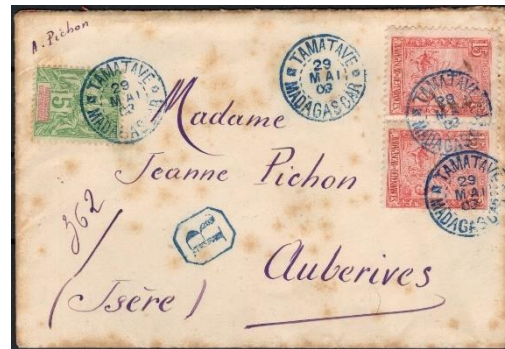 A. Pichon
TAMATAVE
29
MAI
03
MADAGASCAR
TAMATAVE
29
MAI
03
MADAGASCAR
15
5
TAMATAVE
29
MAI
03
MADAGASCAR
TAMATAVE
29
MAI
03
MADAGASCAR
Madame
Jeanne Pichon
362
R
Auberives
(Isère)